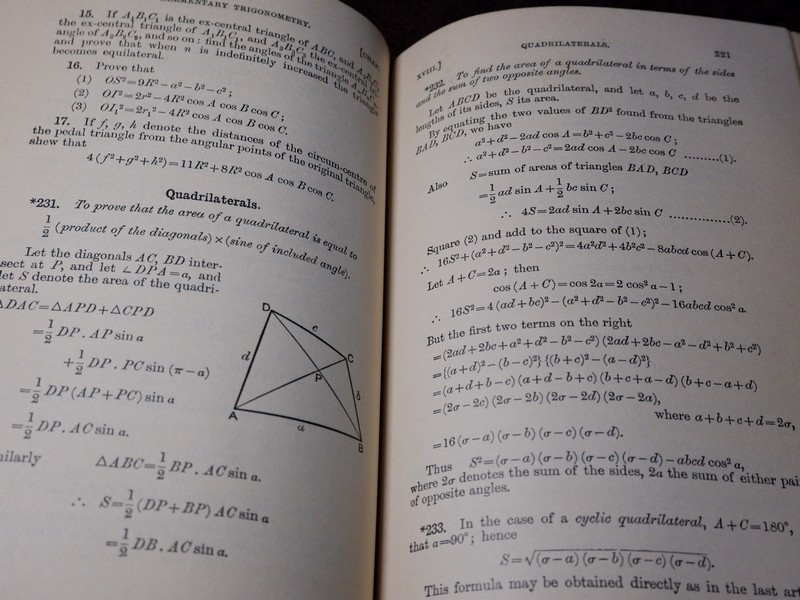 ELEMENTARY TRIGONOMETRY.
[CHAP.
15. If A₁B₁C₁ is the ex-central triangle of ABC, and A₂B₂C₂
the ex-central triangle of A₁B₁C₁, and A₃B₃C₃ the ex-central tri-
angle of A₂B₂C₂, and so on: find the angles of the triangle
and prove that when n is indefinitely increased the triangle
becomes equilateral.
16. Prove that
(1) OS²=9R²−a²−b²−c²;
(2) OI²=2r²−4R² cos A cos B cos C;
(3) OI₁²=2r₁²−4R² cos A cos B cos C.
17. If f, g, h denote the distances of the circum-centre of
the pedal triangle from the angular points of the original triangle,
shew that
4 (f²+g²+h²)=11R²+8R² cos A cos B cos C.
Quadrilaterals.
*231. To prove that the area of a quadrilateral is equal to
1/2 (product of the diagonals) × (sine of included angle).
Let the diagonals AC, BD inter-
sect at P, and let ∠DPA=α, and
let S denote the area of the quadri-
lateral.
△DAC=△APD+△CPD
=1/2 DP . AP sin α
+1/2 DP . PC sin (π−α)
=1/2 DP (AP+PC) sin α
=1/2 DP . AC sin α.
D
c
C
d
P
b
A
a
B
△ABC=1/2 BP . AC sin α.
∴ S=1/2 (DP+BP) AC sin α
=1/2 DB . AC sin α.
XVIII.]
QUADRILATERALS.
221
*232. To find the area of a quadrilateral in terms of the sides
and the sum of two opposite angles.
Let ABCD be the quadrilateral, and let a, b, c, d be the
lengths of its sides, S its area.
By equating the two values of BD² found from the triangles
BAD, BCD, we have
a²+d²−2ad cos A=b²+c²−2bc cos C;
∴ a²+d²−b²−c²=2ad cos A−2bc cos C .........(1).
Also S=sum of areas of triangles BAD, BCD
=1/2 ad sin A+1/2 bc sin C;
∴ 4S=2ad sin A+2bc sin C ...............(2).
Square (2) and add to the square of (1);
∴ 16S²+(a²+d²−b²−c²)²=4a²d²+4b²c²−8abcd cos (A+C).
Let A+C=2α; then
cos (A+C)=cos 2α=2 cos² α−1;
∴ 16S²=4 (ad+bc)²−(a²+d²−b²−c²)²−16abcd cos² α.
But the first two terms on the right
=(2ad+2bc+a²+d²−b²−c²) (2ad+2bc−a²−d²+b²+c²)
={(a+d)²−(b−c)²} {(b+c)²−(a−d)²}
=(a+d+b−c) (a+d−b+c) (b+c+a−d) (b+c−a+d)
=(2σ−2c) (2σ−2b) (2σ−2d) (2σ−2a),
where a+b+c+d=2σ,
=16 (σ−a) (σ−b) (σ−c) (σ−d).
Thus S²=(σ−a) (σ−b) (σ−c) (σ−d)−abcd cos² α,
where 2σ denotes the sum of the sides, 2α the sum of either pair
of opposite angles.
*233. In the case of a cyclic quadrilateral, A+C=180°,
that α=90°; hence
S=√(σ−a) (σ−b) (σ−c) (σ−d).
This formula may be obtained directly as in the last